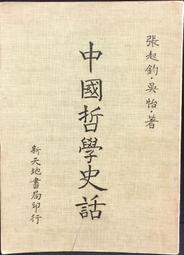 張起鈞·吳怡·著
中國哲學史話
新天地書局印行